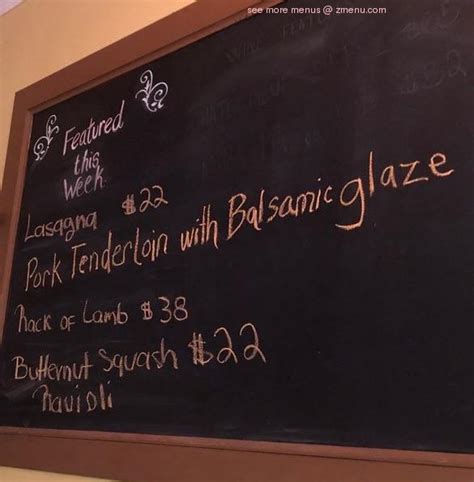 see more menus @ zmenu.com
Featured
this
Week
Lasagna $22
Pork Tenderloin with Balsamic glaze
Rack of Lamb $38
Butternut Squash $22
Ravioli